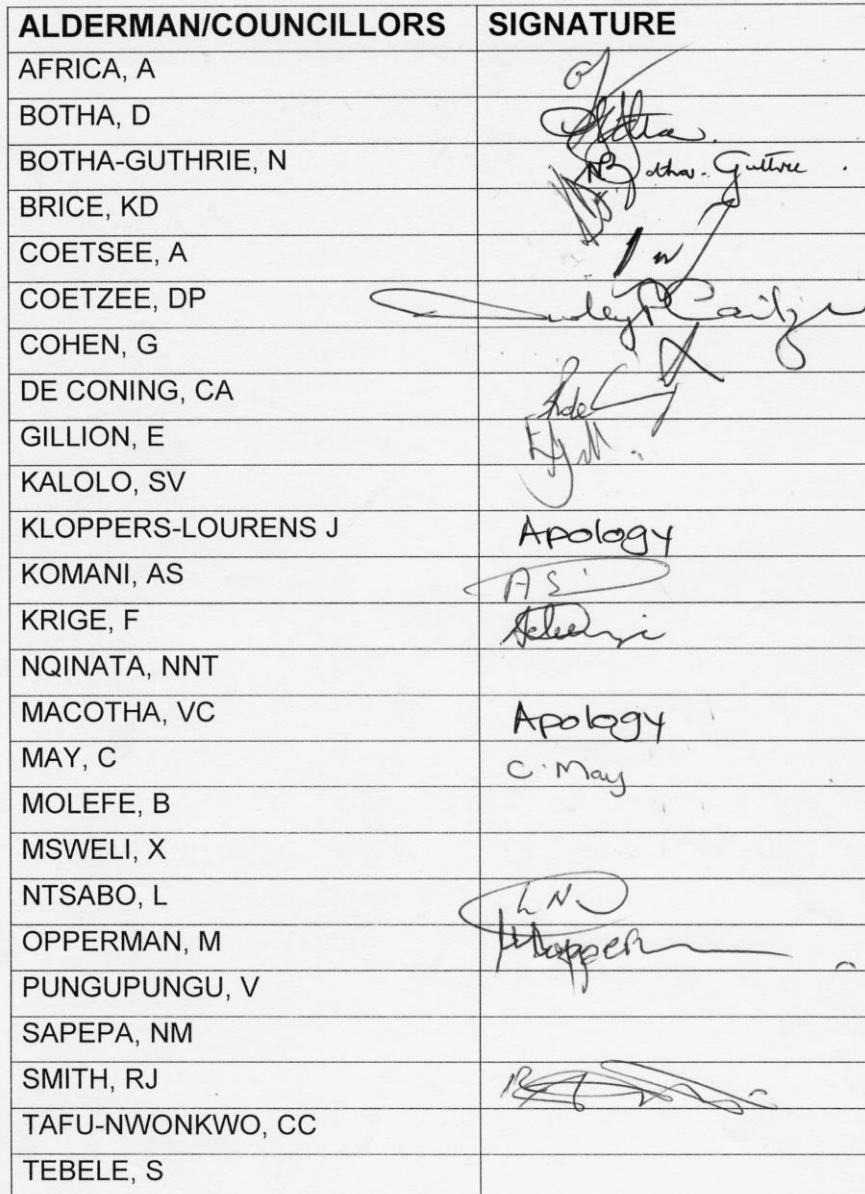 ALDERMAN/COUNCILLORS SIGNATURE
AFRICA, A
BOTHA, D Botha.
BOTHA-GUTHRIE, N N Botha-Guthrie.
BRICE, KD
COETSEE, A
COETZEE, DP
COHEN, G
DE CONING, CA
GILLION, E
KALOLO, SV
KLOPPERS-LOURENS J Apology
KOMANI, AS AS
KRIGE, F
NQINATA, NNT
MACOTHA, VC Apology
MAY, C C. May
MOLEFE, B
MSWELI, X
NTSABO, L LN
OPPERMAN, M
PUNGUPUNGU, V
SAPEPA, NM
SMITH, RJ
TAFU-NWONKWO, CC
TEBELE, S